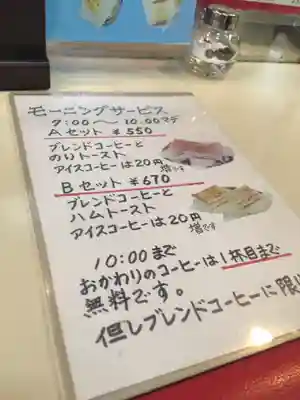 モーニングサービス
7:00〜10:00マデ
Aセット ¥550
ブレンドコーヒーと
のりトースト
アイスコーヒーは20円増です
Bセット ¥670
ブレンドコーヒーと
ハムトースト
アイスコーヒーは20円増です
10:00まで
おかわりのコーヒーは1杯目まで
無料です。
但しブレンドコーヒーに限